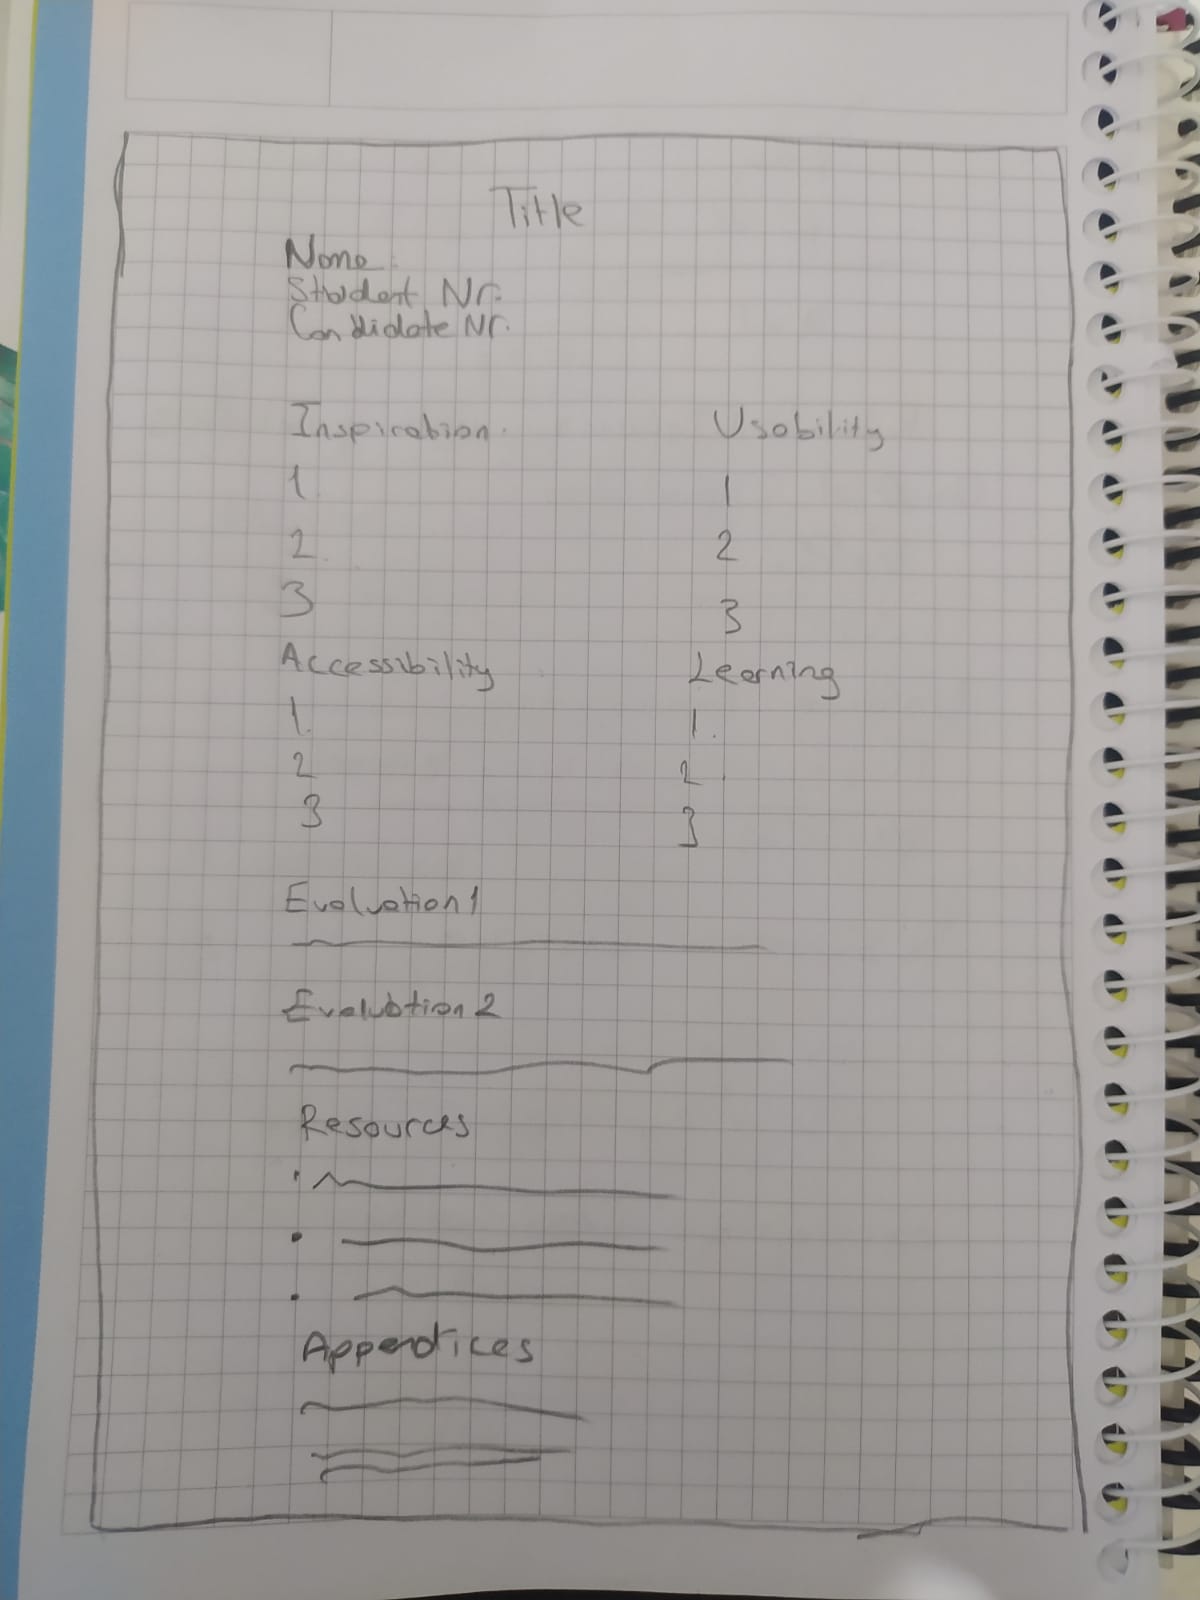 Title
Name
Student Nr.
Candidate Nr.
Inspiration
1
2
3
Usability
1
2
3
Accessibility
1.
2
3
Learning
1.
2
3
Evaluation 1
Evaluation 2
Resources
Appendices